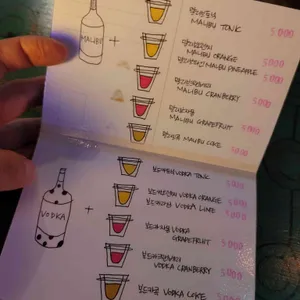 MALIBU
+
말리부토닉 MALIBU TONIK 5000
MALIBU ORANGE
MALIBU PINEAPPLE 5000
MALIBU CRANBERRY 5000
MALIBU GRAPEFRUIT 5000
말리부콕 MALIBU COKE 5000
VODKA
+
보드카토닉 VODKA TONIK 5000
VODKA ORANGE 5000
보드카라임 VODKA LIME 5000
VODKA
GRAPEFRUIT 5000
VODKA CRANBERRY 5000
보드카콕 VODKA COKE 5000